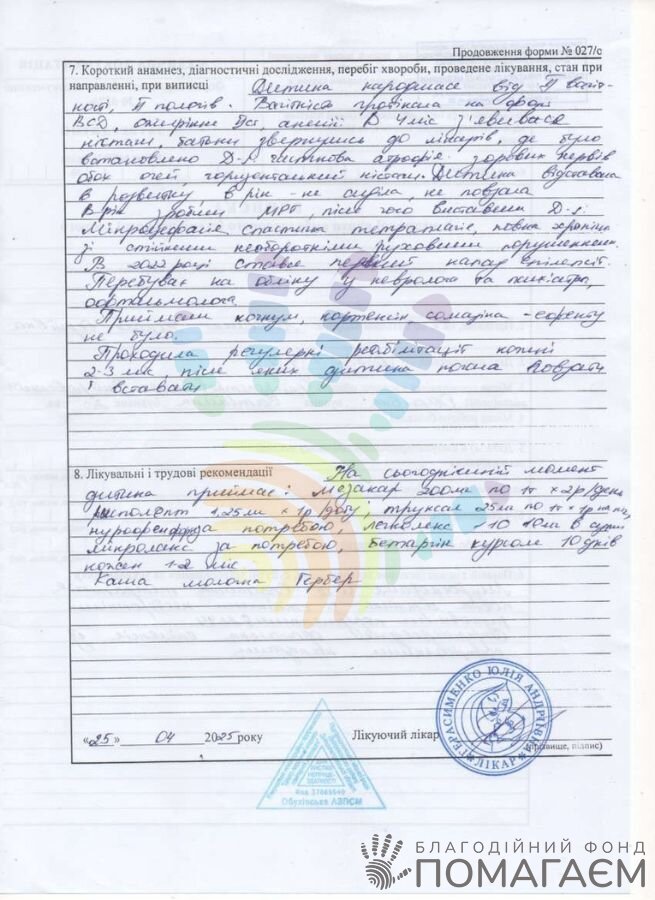 Продовження форми № 027/о
7. Короткий анамнез, діагностичні дослідження, перебіг хвороби, проведене лікування, стан при
направленні, при виписці Дитина народилась від II вагіт-
ності, II пологів. Вагітність протікала на фоні
ВСД, ожиріння IIст, анемії. В 4 міс з'явився
ністагм, батьки звернулись до лікарів, де було
встановлено D-s часткова атрофія зорових нервів
обох очей, горизонтальний ністагм. Дитина відставала
в розвитку, в рік - не сиділа, не повзала
В рік зробили МРТ, після чого виставили D-s:
Мікроцефалія, спастичний тетрапарез,
зі стійкими необоротніми руховими порушеннями.
В 2022 році стався перший напад епілепсії.
Перебуває на обліку у невролога та психіатра,
офтальмолога
Приймали когнум, кортексін, сомазіна - ефекту
не було.
Проходила регулярні реабілітації кожні
2-3 міс, після яких дитина почала повзати
і вставати
8. Лікувальні і трудові рекомендації На сьогоднішній момент
дитина приймає: мезакар 200мг по 1т х 2р/день
1,25мг х 1р/добу, 25мг по 1т х 1р на ніч,
нурофен за потребою, 10мл в
мікролакс за потребою, бетаргін курсом 10 днів
кожен 1-2 міс
Каша молочна Гербер
«25» 04 2025 року Лікуючий лікар
(прізвище, підпис)
ГЕРАСИМЕНКО ЮЛІЯ АНДРІЇВНА
ЛІКАР
Обухівська АЗПСМ
БЛАГОДІЙНИЙ ФОНД
ПОМАГАЄМ